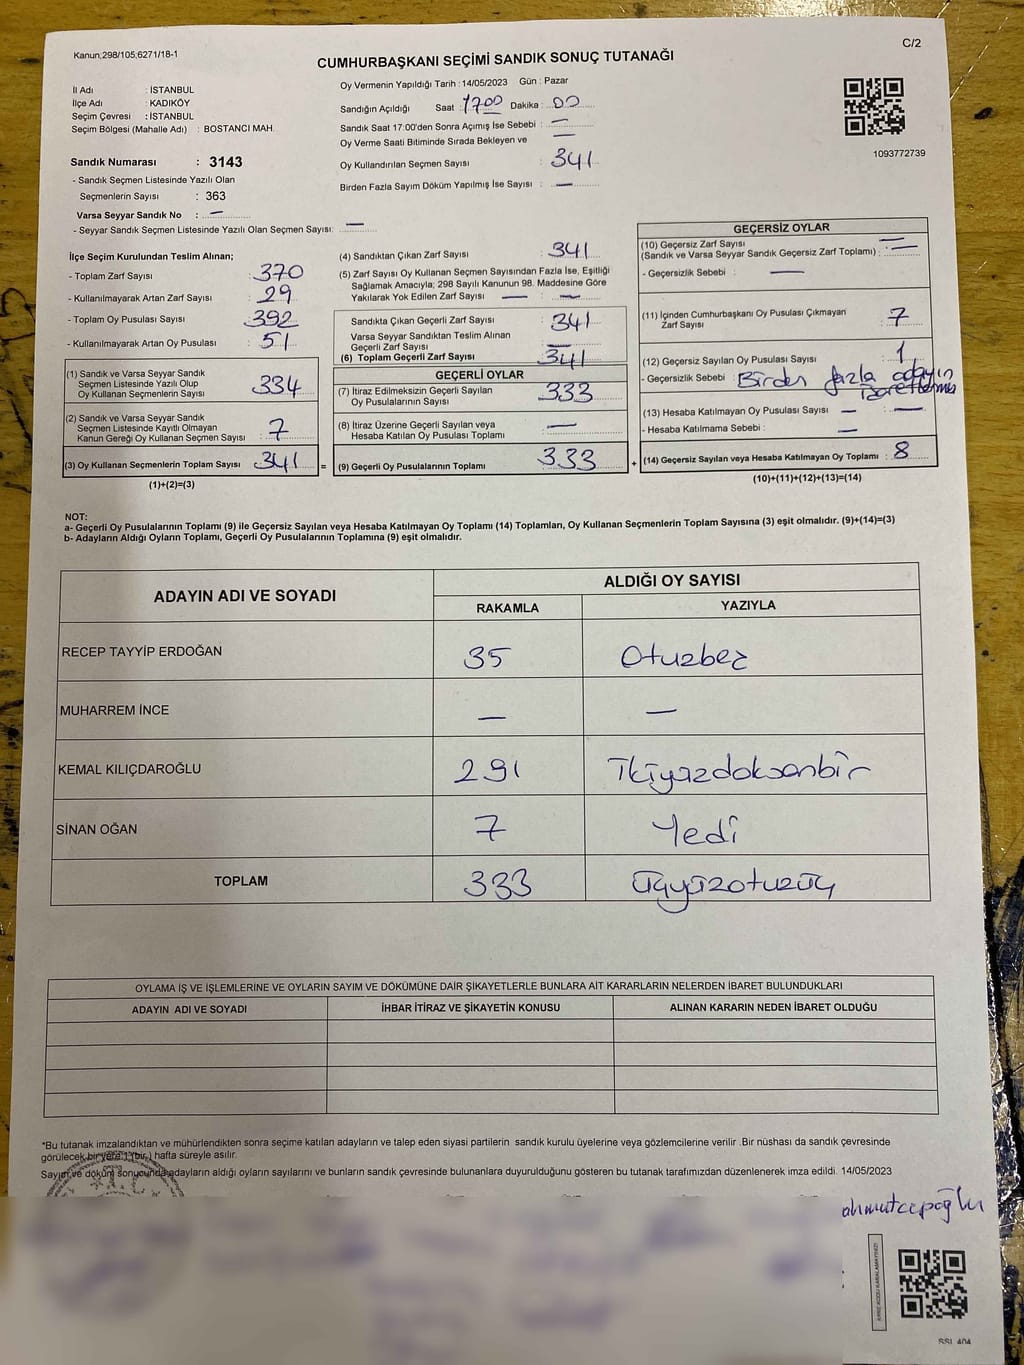 Kanun;298/105;6271/18-1
C/2
CUMHURBAŞKANI SEÇİMİ SANDIK SONUÇ TUTANAĞI
İl Adı : İSTANBUL
İlçe Adı : KADIKÖY
Seçim Çevresi : İSTANBUL
Seçim Bölgesi (Mahalle Adı) : BOSTANCI MAH.
Sandık Numarası : 3143
- Sandık Seçmen Listesinde Yazılı Olan
Seçmenlerin Sayısı : 363
Varsa Seyyar Sandık No : —
- Seyyar Sandık Seçmen Listesinde Yazılı Olan Seçmen Sayısı: —
Oy Vermenin Yapıldığı Tarih : 14/05/2023 Gün : Pazar
Sandığın Açıldığı Saat : 1700 Dakika : 00
Sandık Saat 17:00'den Sonra Açımış İse Sebebi : —
Oy Verme Saati Bitiminde Sırada Bekleyen ve —
Oy Kullandırılan Seçmen Sayısı : 341
Birden Fazla Sayım Döküm Yapılmış İse Sayısı : —
1093772739
İlçe Seçim Kurulundan Teslim Alınan;
- Toplam Zarf Sayısı : 370
- Kullanılmayarak Artan Zarf Sayısı : 29
- Toplam Oy Pusulası Sayısı : 392
- Kullanılmayarak Artan Oy Pusulası : 51
(1) Sandık ve Varsa Seyyar Sandık
Seçmen Listesinde Yazılı Olup
Oy Kullanan Seçmenlerin Sayısı : 334
(2) Sandık ve Varsa Seyyar Sandık
Seçmen Listesinde Kayıtlı Olmayan
Kanun Gereği Oy Kullanan Seçmen Sayısı : 7
(3) Oy Kullanan Seçmenlerin Toplam Sayısı : 341 =
(1)+(2)=(3)
(4) Sandıktan Çıkan Zarf Sayısı : 341
(5) Zarf Sayısı Oy Kullanan Seçmen Sayısından Fazla İse, Eşitliği
Sağlamak Amacıyla; 298 Sayılı Kanunun 98. Maddesine Göre
Yakılarak Yok Edilen Zarf Sayısı — : —
Sandıkta Çıkan Geçerli Zarf Sayısı : 341
Varsa Seyyar Sandıktan Teslim Alınan
Geçerli Zarf Sayısı : —
(6) Toplam Geçerli Zarf Sayısı : 341
GEÇERLİ OYLAR
(7) İtiraz Edilmeksizin Geçerli Sayılan
Oy Pusulalarının Sayısı : 333
(8) İtiraz Üzerine Geçerli Sayılan veya
Hesaba Katılan Oy Pusulası Toplamı : —
(9) Geçerli Oy Pusulalarının Toplamı : 333 +
GEÇERSİZ OYLAR
(10) Geçersiz Zarf Sayısı —
(Sandık ve Varsa Seyyar Sandık Geçersiz Zarf Toplamı) : —
- Geçersizlik Sebebi : —
(11) İçinden Cumhurbaşkanı Oy Pusulası Çıkmayan
Zarf Sayısı : 7
(12) Geçersiz Sayılan Oy Pusulası Sayısı : 1
- Geçersizlik Sebebi : Birden fazla adayın
işaretlenmesi
(13) Hesaba Katılmayan Oy Pusulası Sayısı — : —
- Hesaba Katılmama Sebebi : —
(14) Geçersiz Sayılan veya Hesaba Katılmayan Oy Toplamı : 8
(10)+(11)+(12)+(13)=(14)
NOT:
a- Geçerli Oy Pusulalarının Toplamı (9) ile Geçersiz Sayılan veya Hesaba Katılmayan Oy Toplamı (14) Toplamları, Oy Kullanan Seçmenlerin Toplam Sayısına (3) eşit olmalıdır. (9)+(14)=(3)
b- Adayların Aldığı Oyların Toplamı, Geçerli Oy Pusulalarının Toplamına (9) eşit olmalıdır.
ADAYIN ADI VE SOYADI ALDIĞI OY SAYISI
RAKAMLA YAZIYLA
RECEP TAYYİP ERDOĞAN 35 Otuzbeş
MUHARREM İNCE — —
KEMAL KILIÇDAROĞLU 291 İkiyüzdoksanbir
SİNAN OĞAN 7 Yedi
TOPLAM 333 Üçyüzotuzüç
OYLAMA İŞ VE İŞLEMLERİNE VE OYLARIN SAYIM VE DÖKÜMÜNE DAİR ŞİKAYETLERLE BUNLARA AİT KARARLARIN NELERDEN İBARET BULUNDUKLARI
ADAYIN ADI VE SOYADI İHBAR İTİRAZ VE ŞİKAYETİN KONUSU ALINAN KARARIN NEDEN İBARET OLDUĞU
*Bu tutanak imzalandıktan ve mühürlendikten sonra seçime katılan adayların ve talep eden siyasi partilerin sandık kurulu üyelerine veya gözlemcilerine verilir .Bir nüshası da sandık çevresinde
görülecek bir yere 1 (bir) hafta süreyle asılır.
Sayım ve döküm sonucunda adayların aldığı oyların sayılarını ve bunların sandık çevresinde bulunanlara duyurulduğunu gösteren bu tutanak tarafımızdan düzenlenerek imza edildi. 14/05/2023